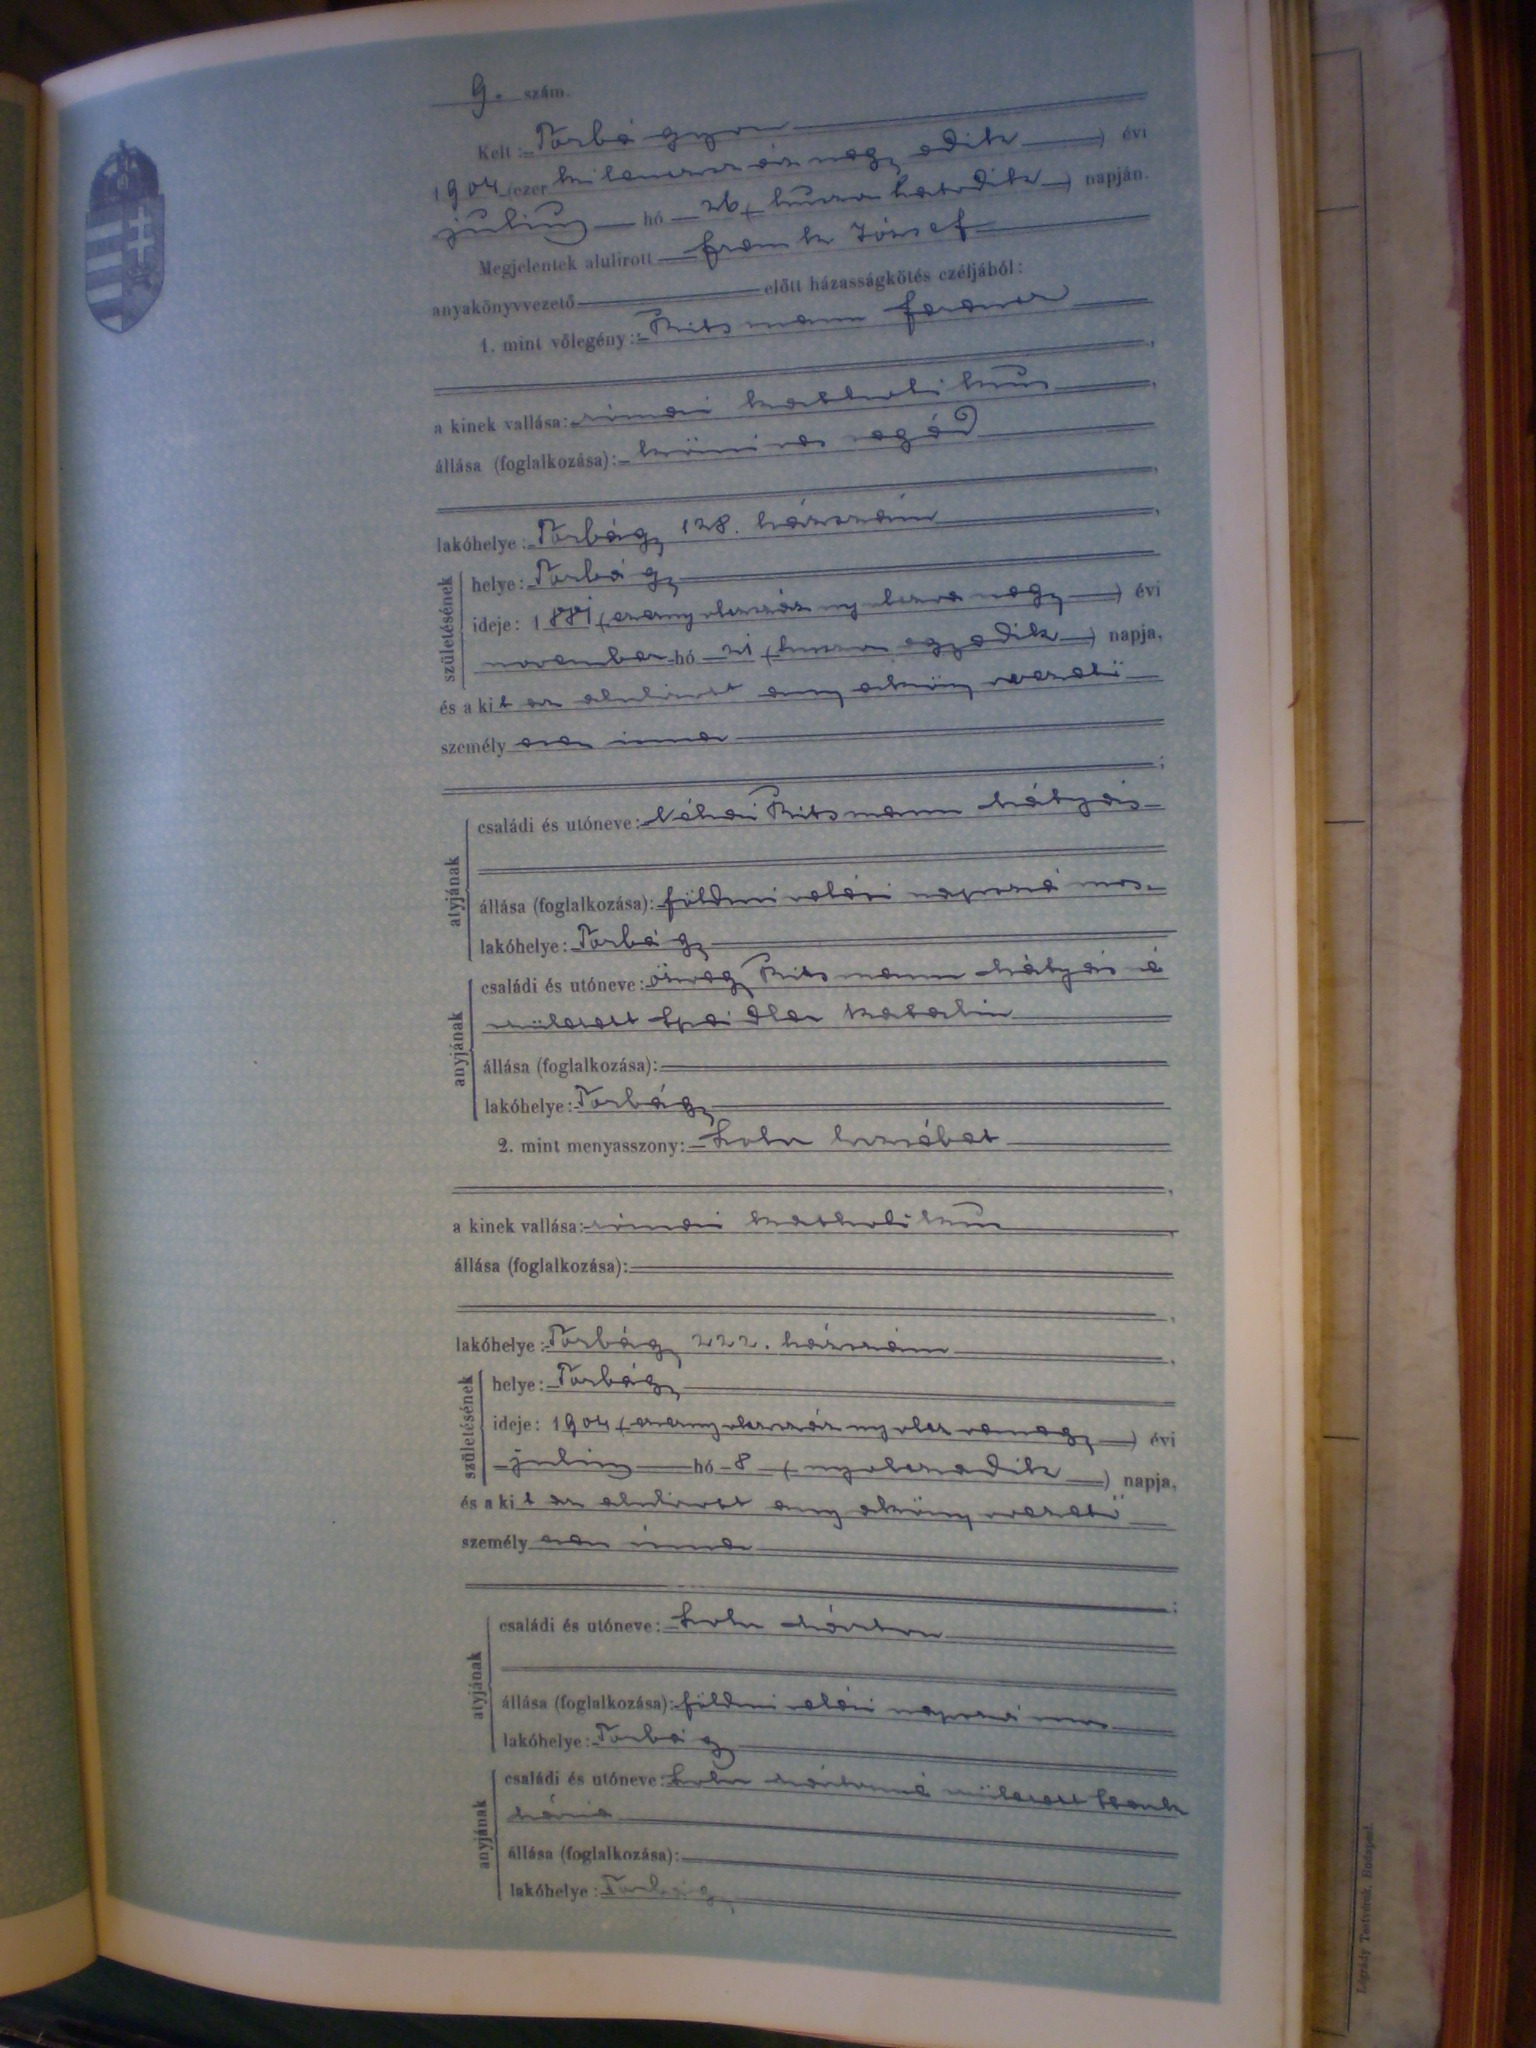 9. szám.
Kelt: Torbágyon
1904 (ezer kilenczszáz negyedik) évi
julius hó 26 (huszonhatodik) napján.
Megjelentek alulirott Frank József
anyakönyvvezető előtt házasságkötés czéljából:
1. mint vőlegény: Ritsmann Ferencz
a kinek vallása: római katholikus
állása (foglalkozása): kőmives segéd
lakóhelye: Torbágy 128. házszám
születésének
helye: Torbágy
ideje: (ezernyolczszáz nyolczvannegy) évi
november hó 21 (huszonegyedik) napja,
és a kit az alulirott anyakönyvvezető
személyesen ismer
;
atyjának
családi és utóneve: Néhai Ritsmann Mátyás
állása (foglalkozása): földmivelési napszámos
lakóhelye: Torbágy
anyjának
családi és utóneve: özvegy Ritsmann Mátyásné
született Speidler Katalin
állása (foglalkozása):
lakóhelye: Torbágy
2. mint menyasszony: Erzsébet
a kinek vallása: római katholikus
állása (foglalkozása):
lakóhelye: Torbágy 222. házszám
születésének
helye: Torbágy
ideje: 1904 (ezernyolczszáz nyolczvannegy) évi
julius hó 8 (nyolczadik) napja,
és a kit az alulirott anyakönyvvezető
személyesen ismer
;
atyjának
családi és utóneve: Márton
állása (foglalkozása): földmivelési napszámos
lakóhelye: Torbágy
anyjának
családi és utóneve: Mártonné született
Mária
állása (foglalkozása):
lakóhelye: Torbágy
Légrády Testvérek, Budapest.